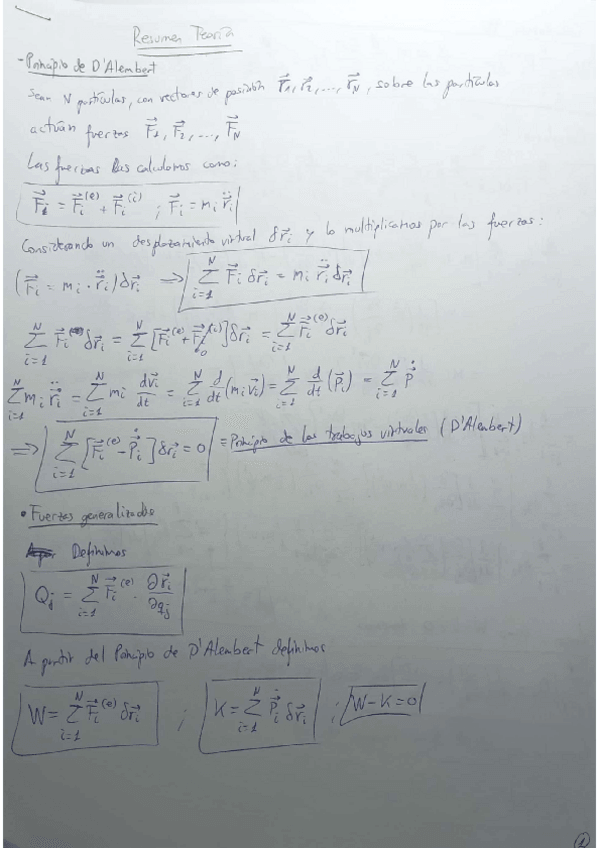 Resumen Teoría
- Principio de D'Alembert
Sean N partículas, con vectores de posición r⃗₁, r⃗₂, ..., r⃗_N, sobre las partículas
actúan fuerzas F⃗₁, F⃗₂, ..., F⃗_N
Las fuerzas las calculamos como:
F⃗ᵢ = F⃗ᵢ^(e) + F⃗ᵢ^(i) ; F⃗ᵢ = mᵢ r⃗̈ᵢ
Considerando un desplazamiento virtual δr⃗ᵢ y lo multiplicamos por las fuerzas:
(F⃗ᵢ = mᵢ · r⃗̈ᵢ) δr⃗ᵢ ⟹ ∑_{i=1}^N F⃗ᵢ δr⃗ᵢ = mᵢ r⃗̈ᵢ δr⃗ᵢ
∑_{i=1}^N F⃗ᵢ δr⃗ᵢ = ∑_{i=1}^N [F⃗ᵢ^(e) + F⃗ᵢ^(i)] δr⃗ᵢ = ∑_{i=1}^N F⃗ᵢ^(e) δr⃗ᵢ
∑_{i=1}^N mᵢ r⃗̈ᵢ = ∑_{i=1}^N mᵢ dv⃗ᵢ/dt = ∑_{i=1}^N d/dt (mᵢ v⃗ᵢ) = ∑_{i=1}^N d/dt (p⃗ᵢ) = ∑_{i=1}^N p⃗̇
⟹ ∑_{i=1}^N [F⃗ᵢ^(e) - p⃗̇ᵢ] δr⃗ᵢ = 0 = Principio de los trabajos virtuales (D'Alembert)
• Fuerzas generalizadas
Definimos
Qⱼ = ∑_{i=1}^N F⃗ᵢ^(e) · ∂r⃗ᵢ/∂qⱼ
A partir del Principio de D'Alembert definimos
W = ∑_{i=1}^N F⃗ᵢ^(e) δr⃗ᵢ ; K = ∑_{i=1}^N p⃗̇ᵢ δr⃗ᵢ ; W - K = 0
1